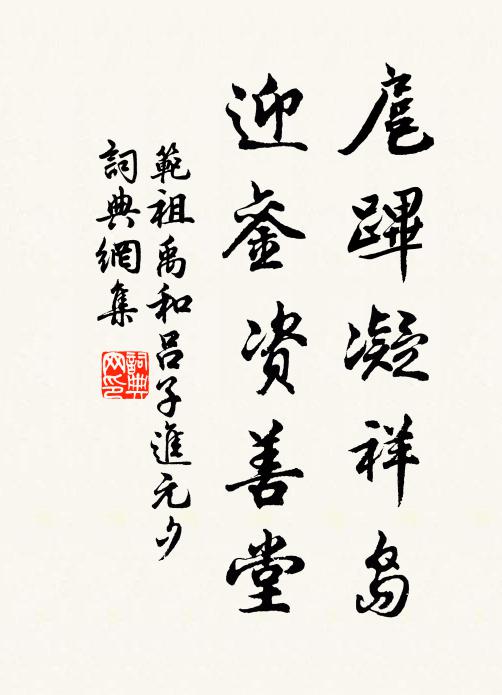 扈蹕凝祥岛
迎銮资善堂
範祖禹和呂子進元夕
詞典網集
詞典网印